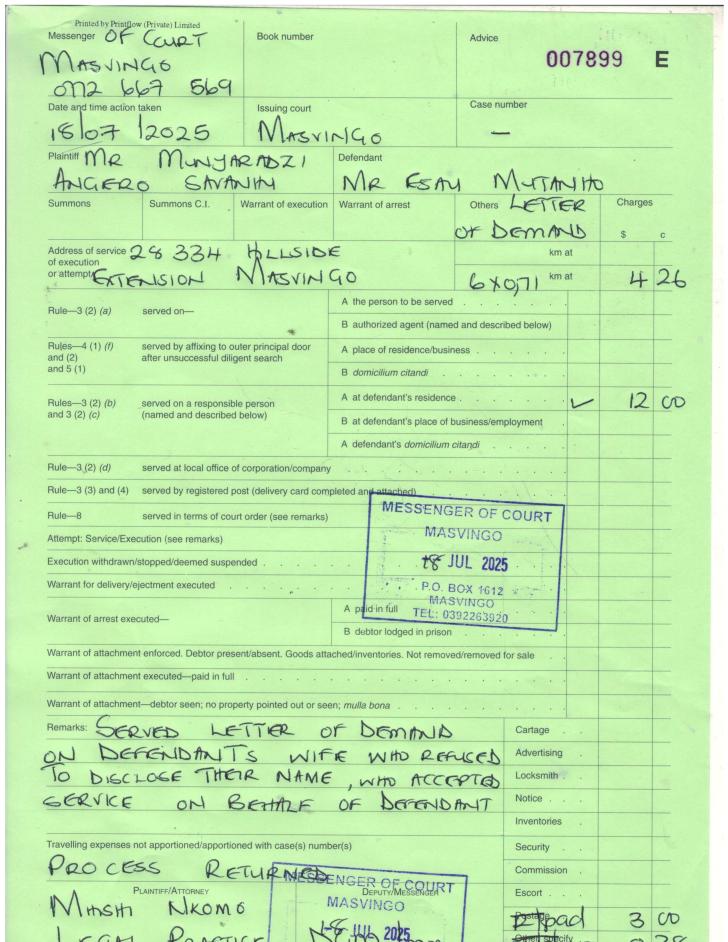 Printed by Printflow (Private) Limited
Messenger OF COURT
MASVINGO
0772 667 569
Book number
Advice
007899 E
Date and time action taken
18/07/2025
Issuing court
MASVINGO
Case number
—
Plaintiff MR MUNYARADZI
ANGERO SAVANHU
Defendant
MR ESAU MUTANHO
Summons
Summons C.I.
Warrant of execution
Warrant of arrest
Others LETTER
OF DEMAND
Charges
$ c
Address of service 28 334 HLLSIDE
of execution
or attempt EXTENSION MASVINGO
km at
6x0,71 km at 4 26
Rule—3 (2) (a) served on—
A the person to be served
B authorized agent (named and described below)
Rules—4 (1) (f) served by affixing to outer principal door
and (2) after unsuccessful diligent search
and 5 (1)
A place of residence/business
B domicilium citandi
Rules—3 (2) (b) served on a responsible person
and 3 (2) (c) (named and described below)
A at defendant's residence ✓ 12 00
B at defendant's place of business/employment
A defendant's domicilium citandi
Rule—3 (2) (d) served at local office of corporation/company
Rule—3 (3) and (4) served by registered post (delivery card completed and attached)
Rule—8 served in terms of court order (see remarks)
Attempt: Service/Execution (see remarks)
Execution withdrawn/stopped/deemed suspended
Warrant for delivery/ejectment executed
MESSENGER OF COURT
MASVINGO
18 JUL 2025
P.O. BOX 1612
MASVINGO
TEL: 0392263920
Warrant of arrest executed—
A paid in full
B debtor lodged in prison
Warrant of attachment enforced. Debtor present/absent. Goods attached/inventories. Not removed/removed for sale
Warrant of attachment executed—paid in full
Warrant of attachment—debtor seen; no property pointed out or seen; mulla bona
Remarks: SERVED LETTER OF DEMAND
ON DEFENDANT'S WIFE WHO REFUSED
TO DISCLOSE THEIR NAME, WHO ACCEPTED
SERVICE ON BEHALF OF DEFENDANT
Cartage
Advertising
Locksmith
Notice
Inventories
Travelling expenses not apportioned/apportioned with case(s) number(s)
PROCESS RETURNED
Security
Commission
Escort
PLAINTIFF/ATTORNEY
DEPUTY/MESSENGER
MESSENGER OF COURT
MASVINGO
18 JUL 2025
MHISHI NKOMO
LEGAL PRACTICE
Postage 3 00
Other specify